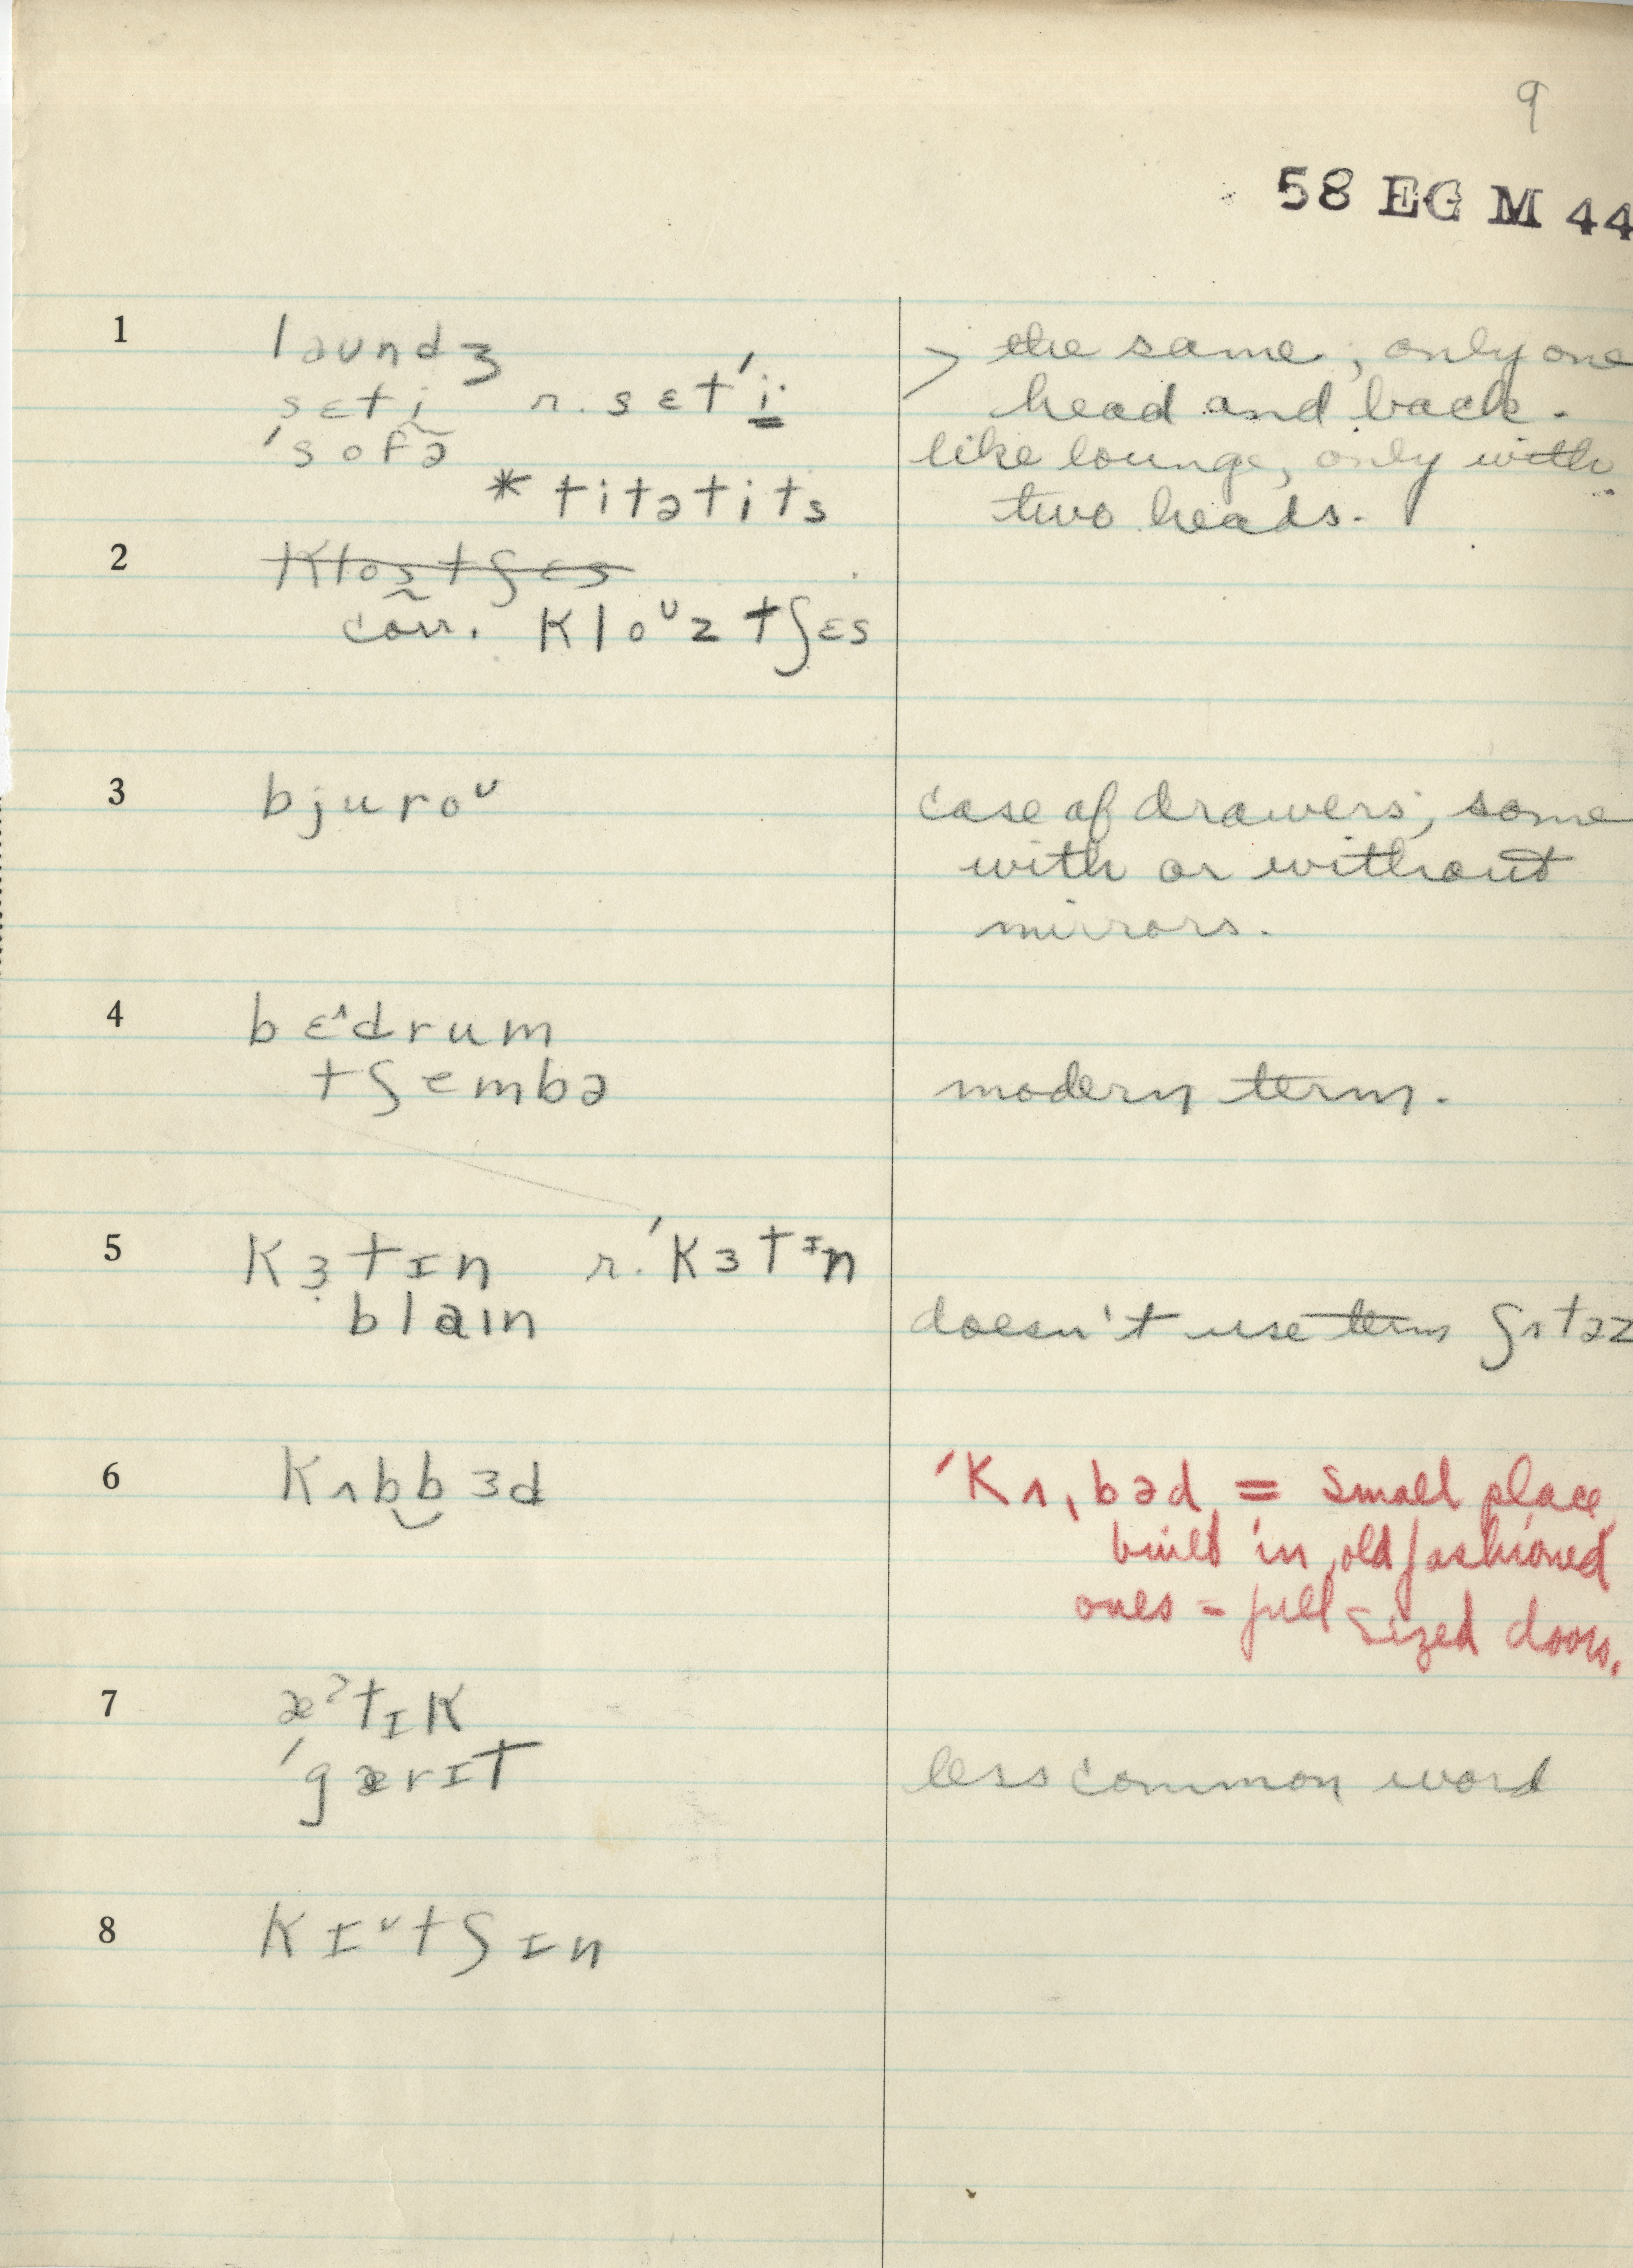 9
58 EG M 44
1 laundʒ > the same, only one
sɛti r. sɛt'i head and back.
'sofə like lounge, only with
* titətits two heads.
2 klostʃɛs
corr. kloᶷz tʃɛs
3 bjuroᶷ case of drawers, some
with or without
mirrors.
4 bɛ^drum
tʃembə modern term.
5 kɜtɪn r. 'kɜtɪn
blaın doesn't use term ʃʌtəz
6 kʌbbɜd 'kʌ,bəd = small place
built in, old fashioned
ones = full-sized doors.
7 æˀtɪk
'gærɪt less common word
8 kɪᵛtʃɪn